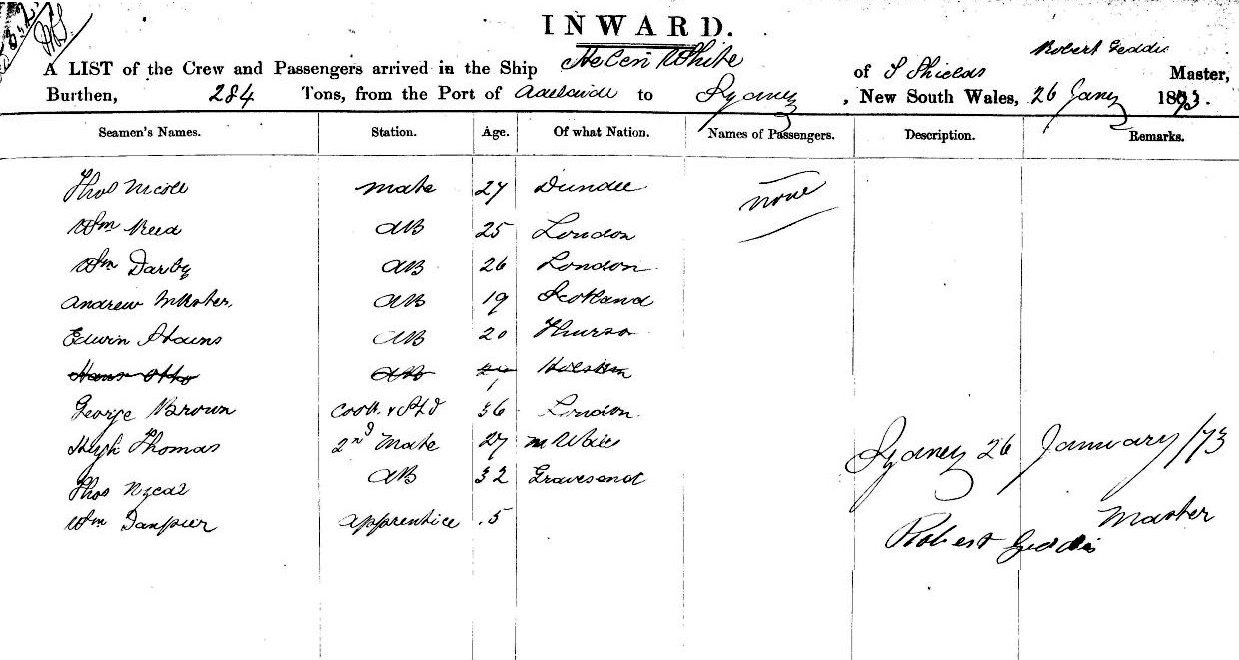 INWARD.
Robert Geddis
A LIST of the Crew and Passengers arrived in the Ship Helen White of S Shields Master,
Burthen, 284 Tons, from the Port of Adelaide to Sydney, New South Wales, 26 Jany 1873.
Seamen's Names. Station. Age. Of what Nation. Names of Passengers. Description. Remarks.
Thos Nicoll mate 27 Dundee none
Wm Reed AB 25 London
Wm Darby AB 26 London
Andrew AB 19 Scotland
Edwin Stains AB 20 Thurso
Hans Otto AB
George Brown Cook & Std 36 London
Hugh Thomas 2nd Mate 27 Sydney 26 January /73
Thos AB 32 Gravesend
Wm Danpier apprentice Master
Robert Geddis